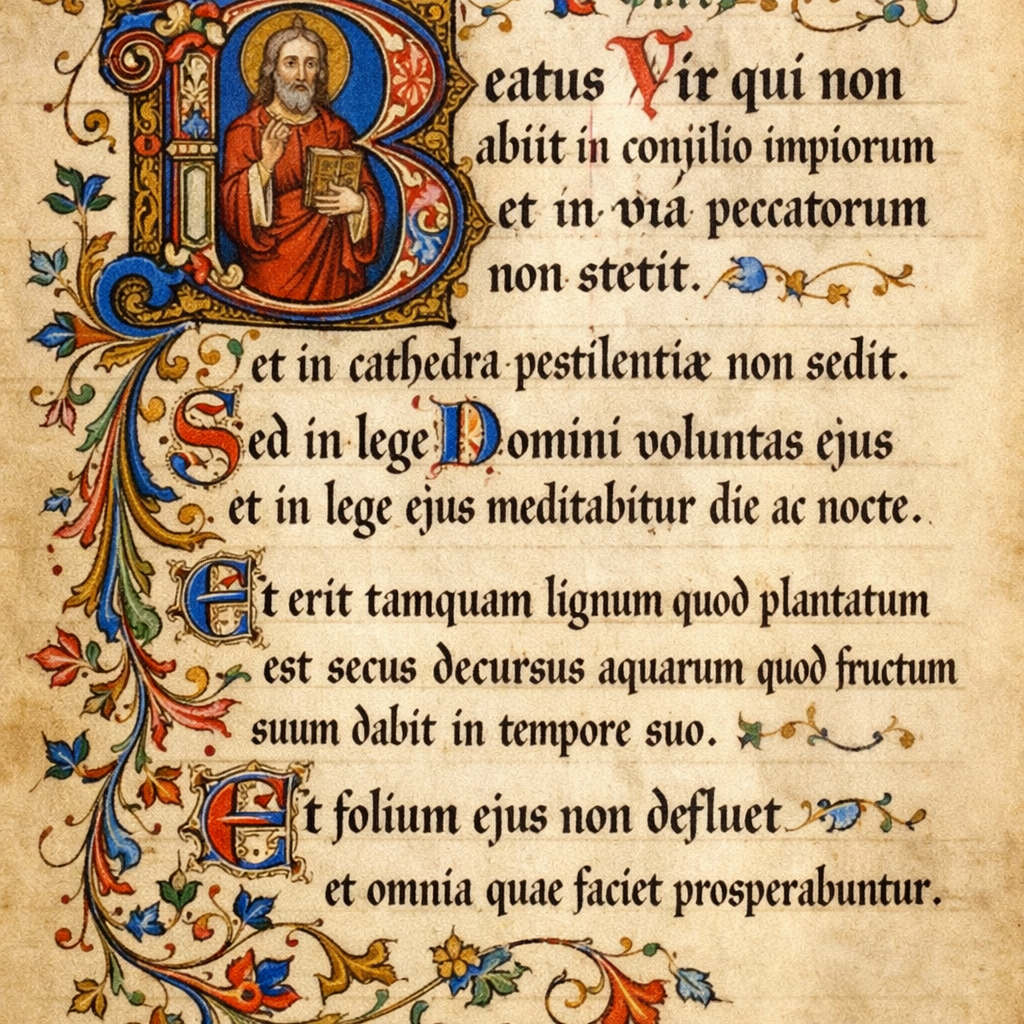 Beatus Vir qui non
abiit in conjilio impiorum
et in viá peccatorum
non stetit.
et in cathedra pestilentiæ non sedit.
Sed in lege Domini voluntas ejus
et in lege ejus meditabitur die ac nocte.
Et erit tamquam lignum quod plantatum
est secus decursus aquarum quod fructum
suum dabit in tempore suo.
Et folium ejus non defluet
et omnia quae faciet prosperabuntur.